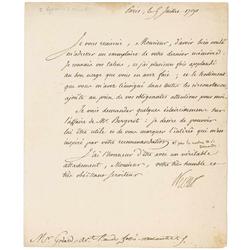 Paris, le 5 Juillet 17
Je vous remercie, Monsieur, d'avoir bien voulu
m'adresser un exemplaire de votre dernier mémoire.
Je connais vos talens, et j'ai plusieurs fois applaudi
au bon usage que vous en avez fait; et le sentiment
que vous m'avez témoigné dans toutes les circonstances,
ajoute au prix de vos obligeantes attentions pour moi.
Je vais demander quelques éclaircissemens sur
l'affaire de Mr. Bergeret: je desire de pouvoir
lui être utile et de vous marquer l'intérêt qui m'est
inspiré par votre recommandation
J'ai l'honneur d'être avec un véritable
attachement, Monsieur, votre très humble et
très obéissant serviteur
Necker
Mr.